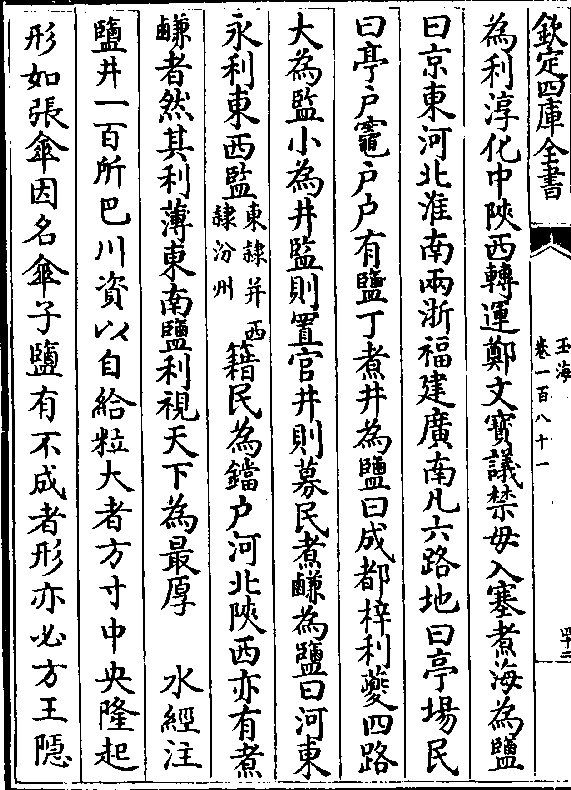 欽定四庫全書
玉海
卷一百八十一
四十二
為利淳化中陜西轉運鄭文寶議禁毋入塞煮海為鹽
曰京東河北淮南兩浙福建廣南凡六路地曰亭場民
曰亭戶竈戶戶有鹽丁煮井為鹽曰成都梓利夔四路
大為監小為井監則置官井則募民煮鹻為鹽曰河東
永利東西監東隷并西隷汾州籍民為鐺户河北陜西亦有煮
鹻者然其利薄東南鹽利視天下為最厚　水經注
鹽井一百所巴川資以自給粒大者方寸中央隆起
形如張傘因名傘子鹽有不成者形亦必方王隠